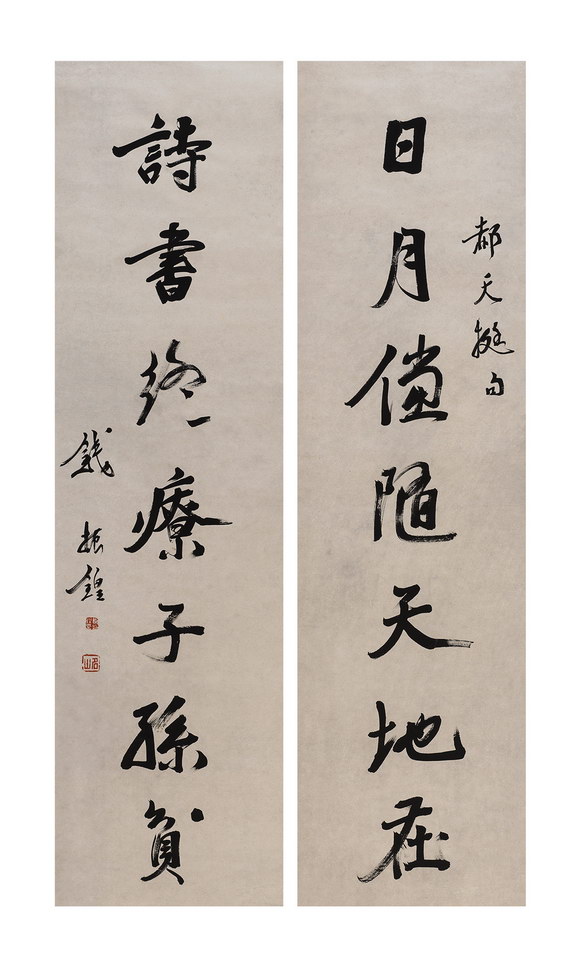 郝天挺句
日月儻隨天地在
詩書終療子孫貧
錢振鍠
名山